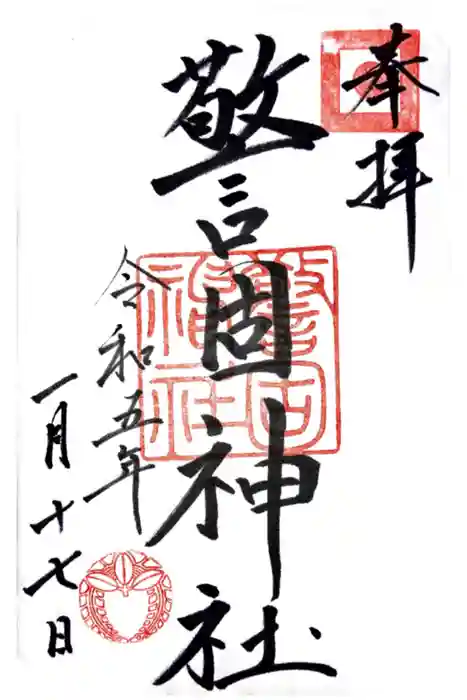 奉拝
警固神社
令和五年
一月十七日